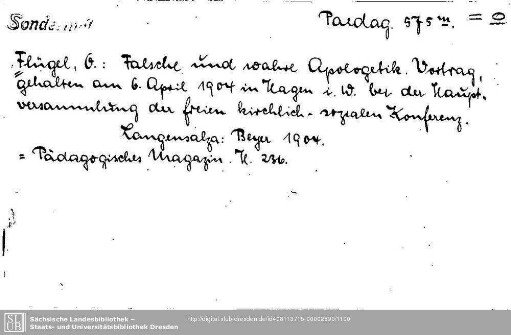 Paedag. 575 m. = 0
Flügel, O.: Falsche und wahre Apologetik. Vortrag,
gehalten am 6. April 1904 in Hagen i. W. bei der Haupt-
versammlung der freien kirchlich-sozialen Konferenz.
Langensalza: Beyer 1904.
= Pädagogisches Magazin. H. 236.
SLUB
Sächsische Landesbibliothek –
Staats- und Universitätsbibliothek Dresden